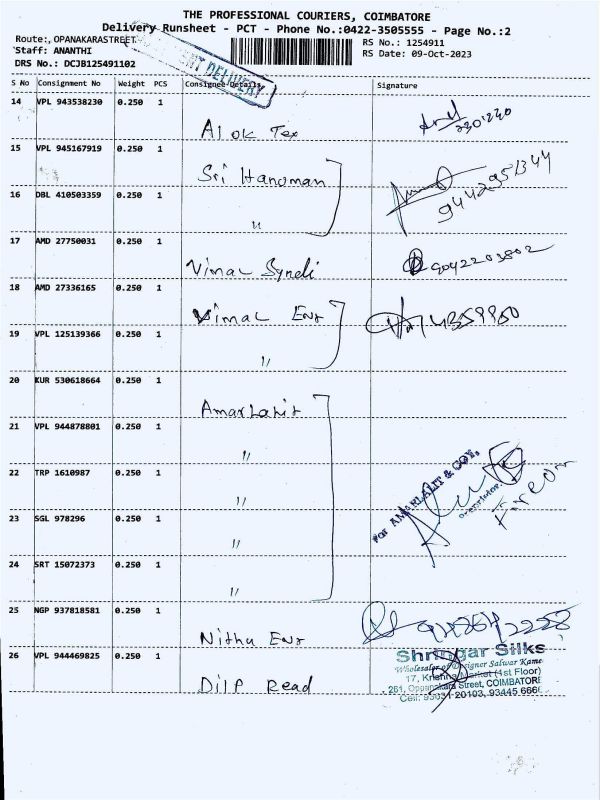 THE PROFESSIONAL COURIERS, COIMBATORE
Delivery Runsheet - PCT - Phone No.:0422-3505555 - Page No.:2
Route:, OPANAKARASTREET
RS No.: 1254911
Staff: ANANTHI
RS Date: 09-Oct-2023
DRS No.: DCJB125491102
DELIVERY
S No Consignment No Weight PCS Consignee Details Signature
14 VPL 943538230 0.250 1
Alok Tex
15 VPL 945167919 0.250 1
Sri Hanuman
9442951344
16 DBL 410503359 0.250 1
"
17 AMD 27750031 0.250 1
Vimal Syndi
9042203802
18 AMD 27336165 0.250 1
Vimal Ent
19 VPL 125139366 0.250 1
"
20 KUR 530618664 0.250 1
Amarlalit
21 VPL 944878801 0.250 1
"
For AMARLALIT & COY,
22 TRP 1610987 0.250 1
"
Proprietor
23 SGL 978296 0.250 1
"
24 SRT 15072373 0.250 1
"
25 NGP 937818581 0.250 1
Nithu Ent
26 VPL 944469825 0.250 1
Dilp Read
Shringar Silks
Wholesaler of Designer Salwar Kame
17, Krishna Market (1st Floor)
261, Oppanakara Street, COIMBATORE
Cell: 93031 20103, 93445 666